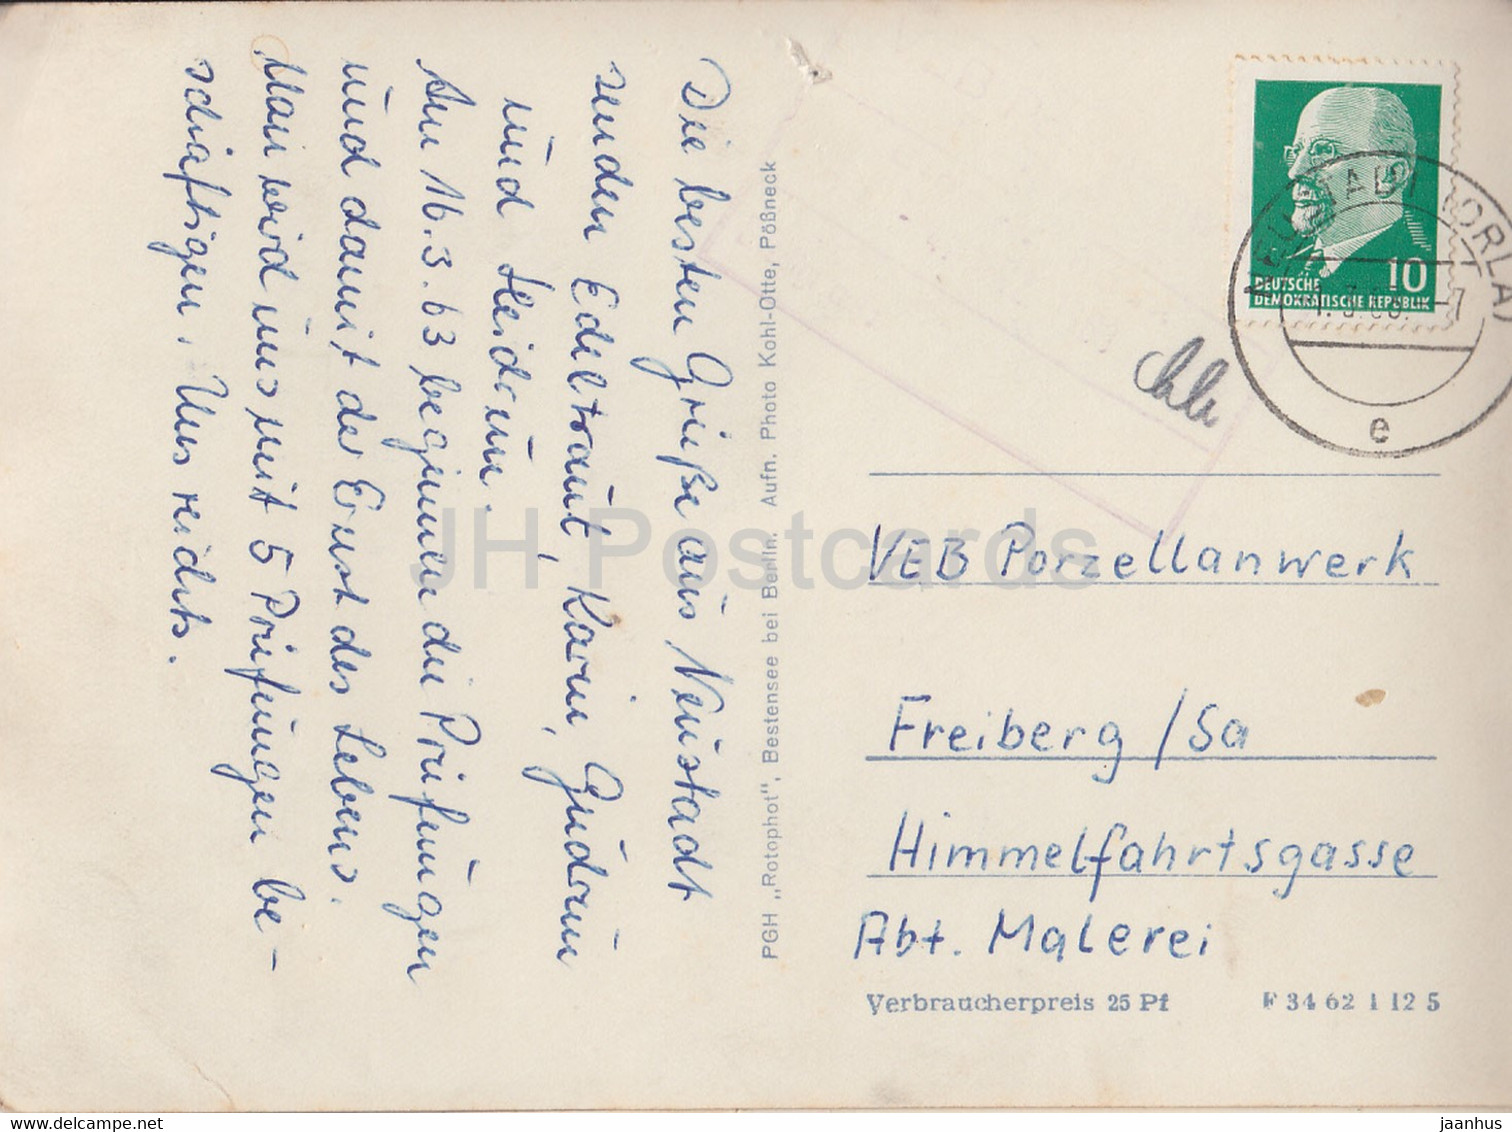 Die besten Grüße aus Neustadt
senden Edeltraut, Karin, Gudrun
und Heidrun.
Am 16.3.63 beginnen die Prüfungen
und damit der Ernst des Lebens.
Man wird uns mit 5 Prüfungen be-
schäftigen. Uns reichts.
PGH „Rotophot", Bestensee bei Berlin. Aufn. Photo Kohl-Otte, Pößneck
10
DEUTSCHE
DEMOKRATISCHE REPUBLIK
NEUSTADT (ORLA)
e
VEB Porzellanwerk
Freiberg /Sa
Himmelfahrtsgasse
Abt. Malerei
Verbraucherpreis 25 Pf F 34 62 1 12 5
JH Postcards
delcampe.net
jaanhus